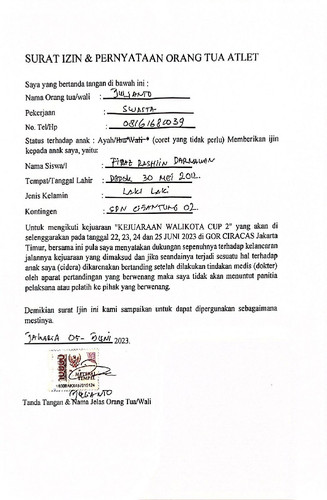 SURAT IZIN & PERNYATAAN ORANG TUA ATLET
Saya yang bertanda tangan di bawah ini :
Nama Orang tua/wali : JULIANTO
Pekerjaan : SWASTA
No. Tel/Hp : 08161680039
Status terhadap anak : Ayah/Ibu/Wali * (coret yang tidak perlu) Memberikan ijin
kepada anak saya, yaitu:
Nama Siswa/i :
Tempat/Tanggal Lahir : DEPOK 30 MEI 2012
Jenis Kelamin : LAKI LAKI
Kontingen : SDN CIBANTUNG 02
Untuk mengikuti kejuaraan "KEJUARAAN WALIKOTA CUP 2" yang akan di
selenggarakan pada tanggal 22, 23, 24 dan 25 JUNI 2023 di GOR CIRACAS Jakarta
Timur, bersama ini pula saya menyatakan dukungan sepenuhnya terhadap kelancaran
jalannya kejuaraan yang dimaksud dan jika seandainya terjadi sesuatu hal terhadap
anak saya (cidera) dikarenakan bertanding setelah dilakukan tindakan medis (dokter)
oleh aparat pertandingan yang berwenang maka saya tidak akan menuntut panitia
pelaksana atau pelatih ke pihak yang berwenang.
Demikian surat Ijin ini kami sampaikan untuk dapat dipergunakan sebagaimana
mestinya.
JAKARTA 05- JUNI 2023.
10000
METERAI
TEMPEL
JULIANTO
Tanda Tangan & Nama Jelas Orang Tua/Wali